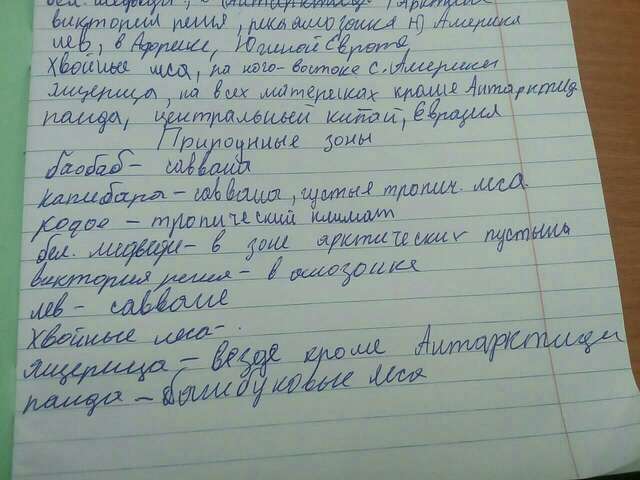 бел. медведи, в Арктика
виктория регия, река амозонка Ю Америка
лев, в Африке, Южной Европа
хвойные леса, на юго-востоке С. Америки
ящерица, на всех материках кроме Антарктид
панда, центральный китай, Евразия
Природные зоны
баобаб - саванна
капибара - саванна, густые тропич. леса
кодое - тропический климат
бел. медведи - в зоне арктических пустынь
виктория регия - в амозонке
лев - саванне
хвойные леса -
ящерица - везде кроме Антарктиды
панда - бамбуковые леса